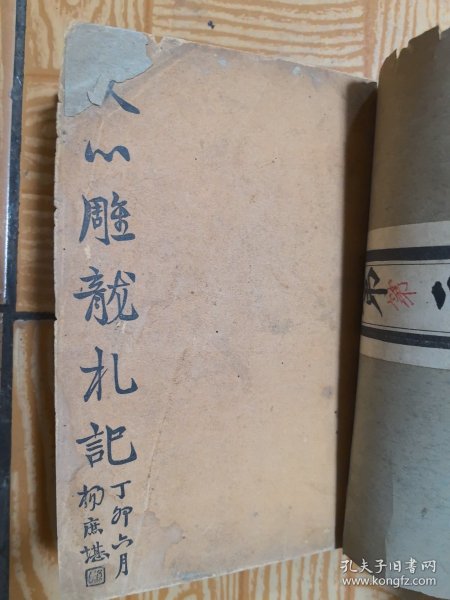 文心雕龍札記
丁卯六月
楊庶堪
第
孔夫子旧书网
www.kongfz.com